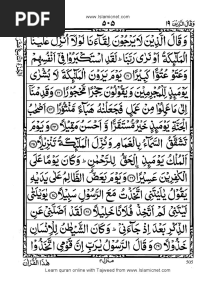 www.islamicnet.com
PDF
وَقَالَ الَّذِيْنَ ١٩
٥٠٥
وَ قَالَ الَّذِيْنَ لَا يَرْجُوْنَ لِقَآءَنَا لَوْلَاۤ اُنْزِلَ عَلَيْنَا
الْمَلٰٓئِكَةُ اَوْ نَرٰى رَبَّنَا ؕ لَقَدِ اسْتَكْبَرُوْا فِيْۤ اَنْفُسِهِمْ
وَ عَتَوْ عُتُوًّا كَبِيْرًا يَوْمَ يَرَوْنَ الْمَلٰٓئِكَةَ لَا بُشْرٰى
يَوْمَئِذٍ لِّلْمُجْرِمِيْنَ وَ يَقُوْلُوْنَ حِجْرًا مَّحْجُوْرًا وَ قَدِمْنَاۤ
اِلٰى مَا عَمِلُوْا مِنْ عَمَلٍ فَجَعَلْنٰهُ هَبَآءً مَّنْثُوْرًا اَصْحٰبُ
الْجَنَّةِ يَوْمَئِذٍ خَيْرٌ مُّسْتَقَرًّا وَّ اَحْسَنُ مَقِيْلًا وَ يَوْمَ
تَشَقَّقُ السَّمَآءُ بِالْغَمَامِ وَ نُزِّلَ الْمَلٰٓئِكَةُ تَنْزِيْلًا
اَلْمُلْكُ يَوْمَئِذِ اِلْحَقُّ لِلرَّحْمٰنِ ؕ وَ كَانَ يَوْمًا عَلَى
الْكٰفِرِيْنَ عَسِيْرًا وَ يَوْمَ يَعَضُّ الظَّالِمُ عَلٰى يَدَيْهِ
يَقُوْلُ يٰلَيْتَنِى اتَّخَذْتُ مَعَ الرَّسُوْلِ سَبِيْلًا يٰوَيْلَتٰى
لَيْتَنِيْ لَمْ اَتَّخِذْ فُلَانًا خَلِيْلًا لَقَدْ اَضَلَّنِيْ عَنِ
الذِّكْرِ بَعْدَ اِذْ جَآءَنِيْ ؕ وَ كَانَ الشَّيْطٰنُ لِلْاِنْسَانِ
خَذُوْلًا وَ قَالَ الرَّسُوْلُ يٰرَبِّ اِنَّ قَوْمِى اتَّخَذُوْا
هٰذَا الْقُرْاٰنَ
505
Learn quran online with Tajweed from www.islamicnet.com